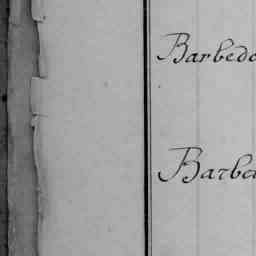 Barbedo
Barba